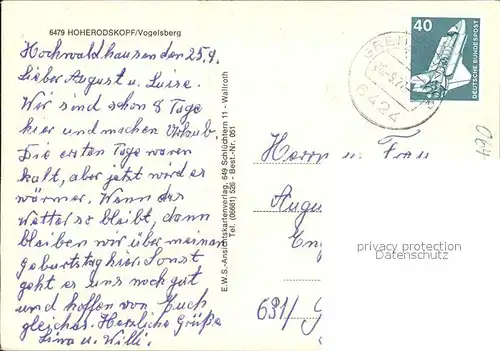 6479 HOHERODSKOPF/Vogelsberg
Hochwaldhausen den 25.9.
Lieber August u. Luise.
Wir sind schon 8 Tage
hier und machen Urlaub.
Die ersten Tage waren
kalt, aber jetzt wird es
wärmer. Wenn das
Wetter so bleibt, dann
bleiben wir über meinen
Geburtstag hier. Sonst
geht es uns noch gut
und hoffen von Euch
gleiches. Herzliche Grüße
Lina u. Willi.
E.W.S.-Ansichtskartenverlag, 649 Schlüchtern 11 - Wallroth
Tel. (06661) 526 - Best.-Nr. 061
40
DEUTSCHE BUNDESPOST
6424
Herrn u. Frau
Augu
En
691/
064
privacy protection
Datenschutz